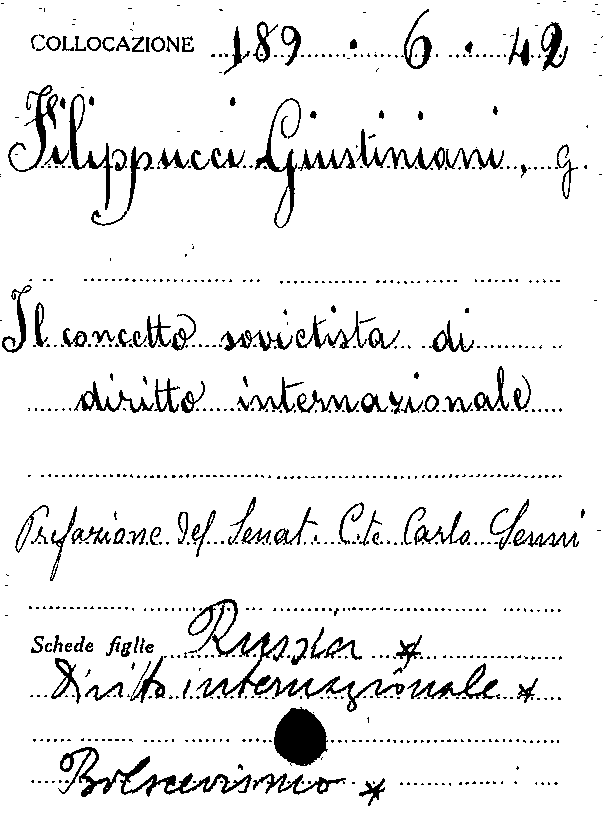 COLLOCAZIONE 189 . 6 . 42
Filippucci Giustiniani, g.
Il concetto sovietista di
diritto internazionale
Prefazione del Senat. C.te Carlo Senni
Schede figlie Russia *
Diritto internazionale *
Bolscevismo *